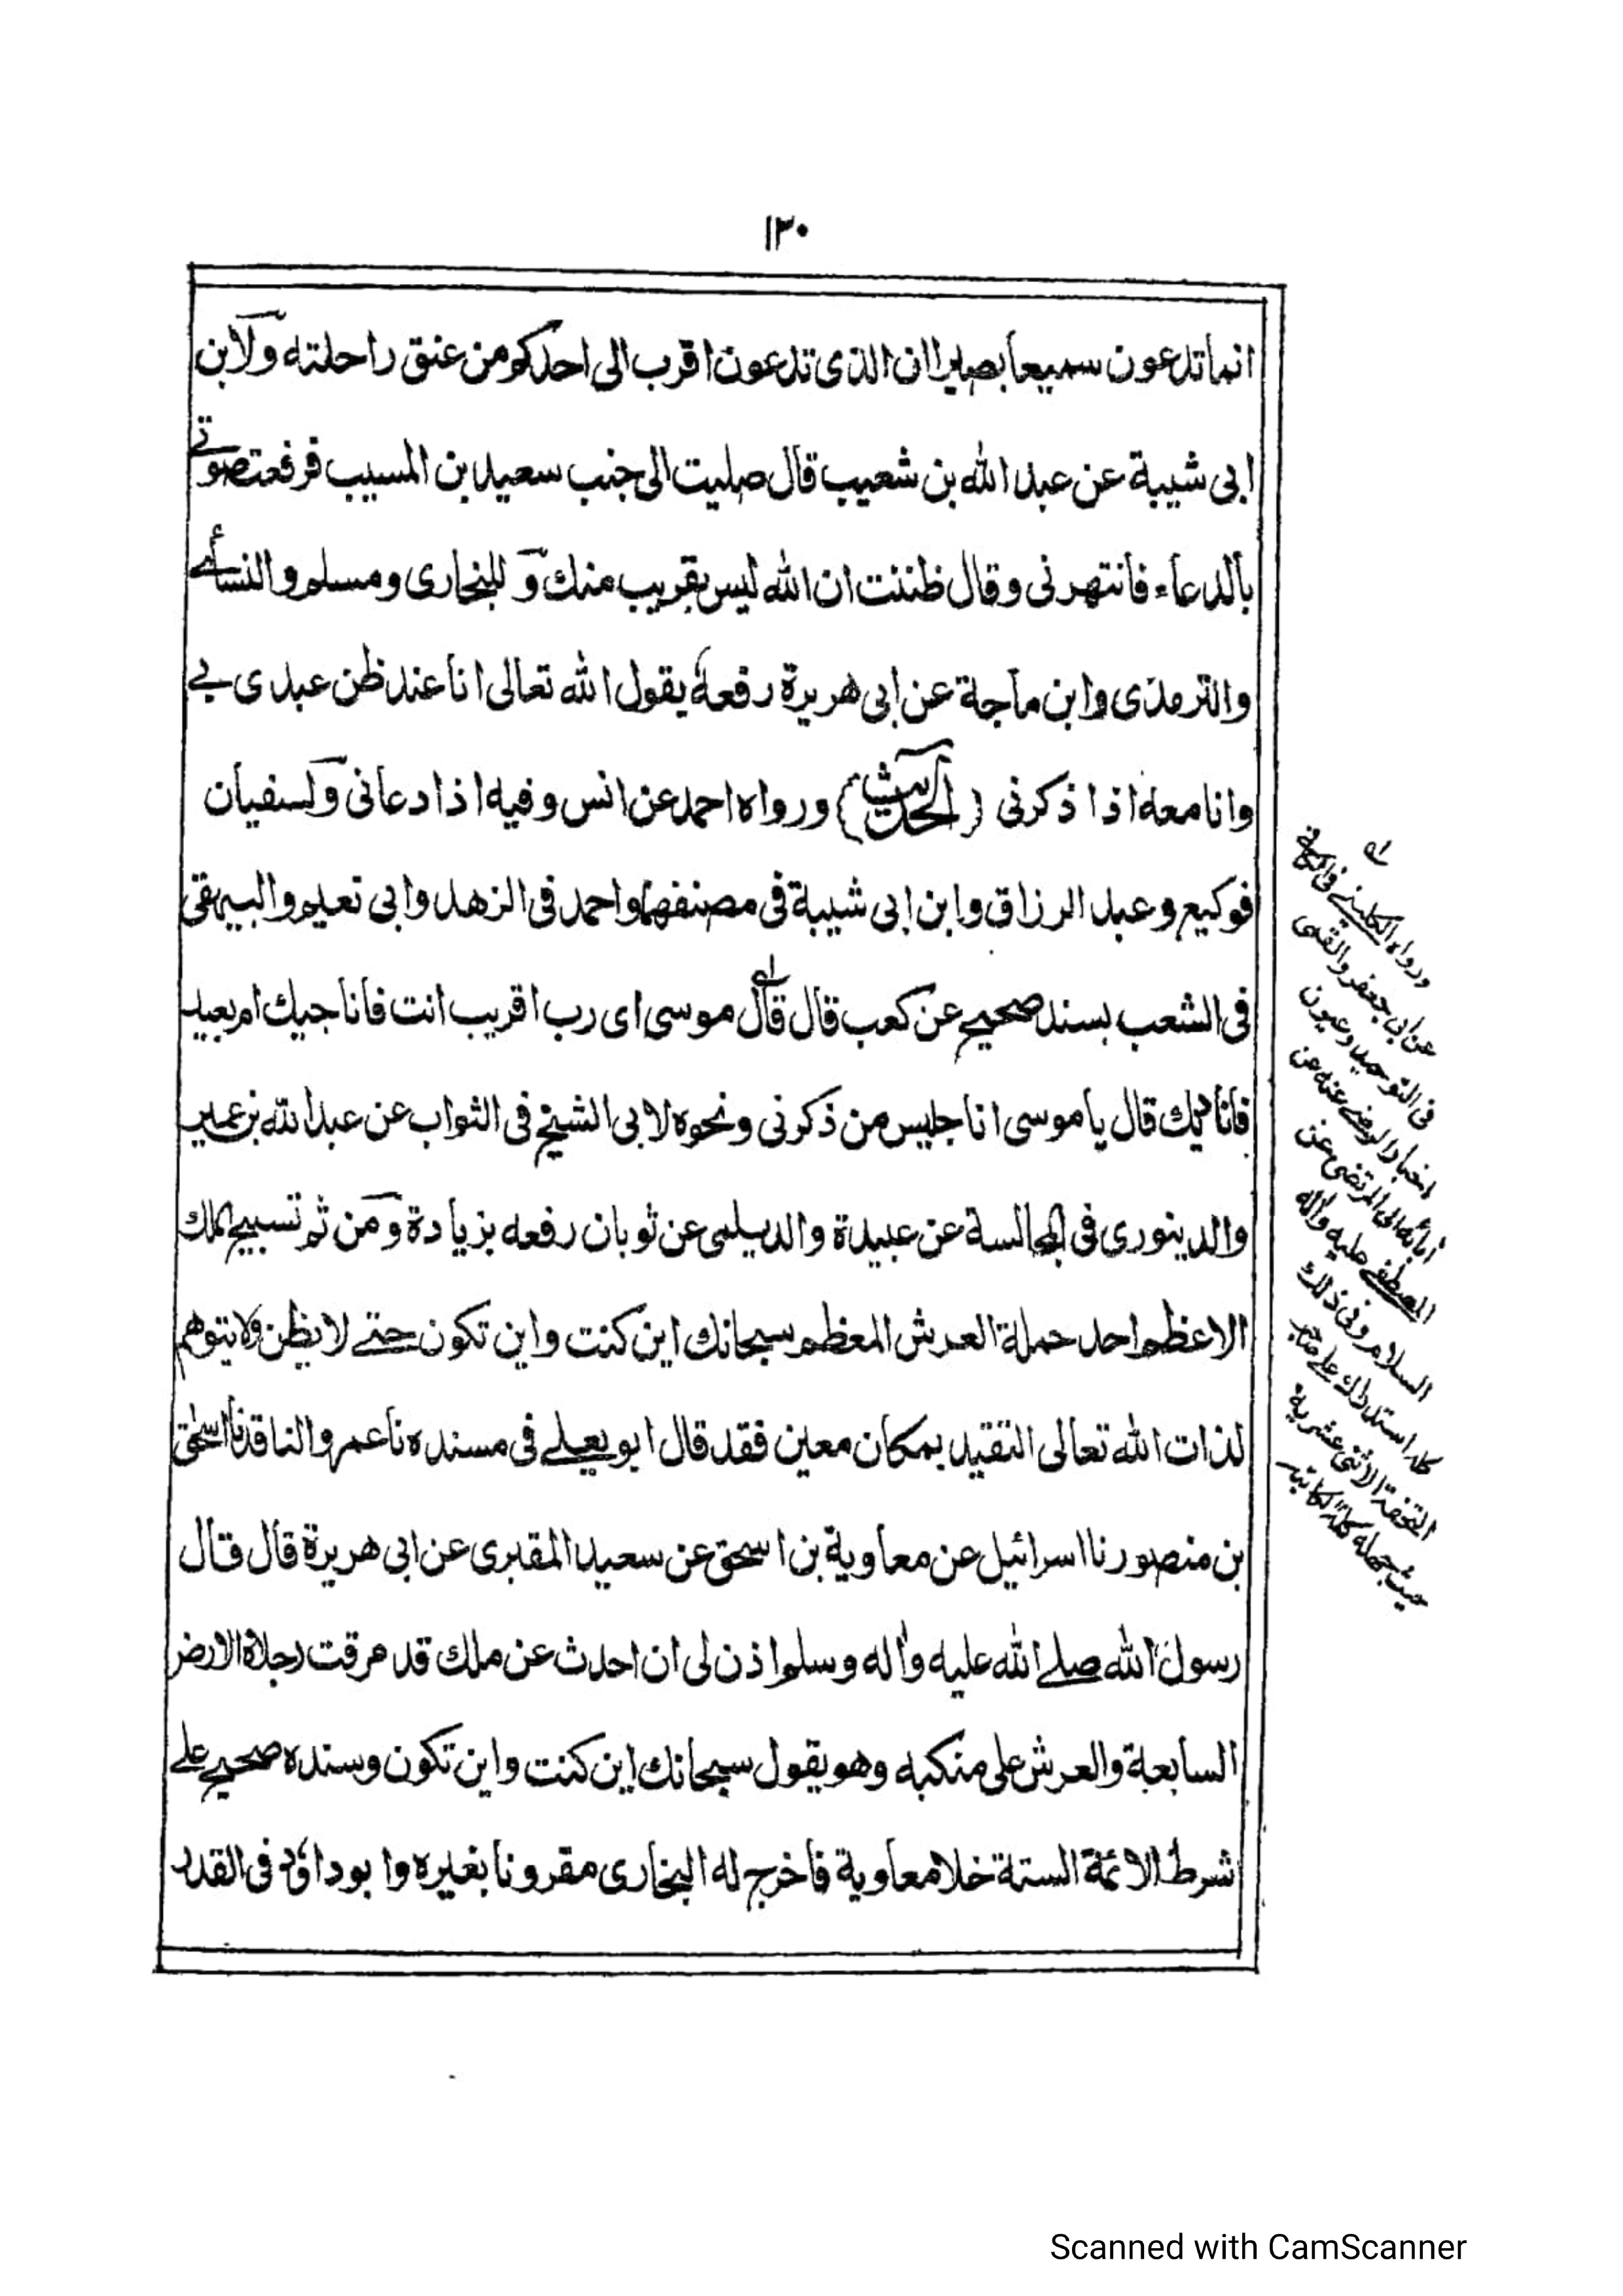 ١٣٠
انما تدعون سميعا بصيرا ان الذى تدعون اقرب الى احدكم من عنق راحلته ولابن
ابى شيبة عن عبد الله بن شعيب قال صليت الى جنب سعيد بن المسيب فرفعت صوتے
بالدعاء فانتهرنى وقال ظننت ان الله ليس بقريب منك و للبخارى ومسلم والنسائے
والترمذى وابن ماجة عن ابى هريرة رفعه يقول الله تعالى انا عند ظن عبدى بے
وانا معه اذا ذكرنى (الحديث) ورواه احمد عن انس وفيه اذا دعانى ولسفيان
فوكيع وعبد الرزاق وابن ابى شيبة فى مصنفهما واحمد فى الزهد وابى نعيم والبيهقى
فى الشعب بسند صحيح عن كعب قال قال موسى اى رب اقريب انت فاناجيك ام بعيد
فاناديك قال يا موسى انا جليس من ذكرنى ونحوه لابى الشيخ فى الثواب عن عبد الله بن عمير
والدينورى فى المجالسة عن عبيدة والديلمى عن ثوبان رفعه بزيادة ومن ثم تسبيح الملك
الاعظم احد حملة العرش المعظم سبحانك اين كنت واين تكون حتے لا يظن ولا يتوهم
لذات الله تعالى التقيد بمكان معين فقد قال ابو يعلے فى مسنده نا عمرو الناقد نا اسحٰق
بن منصور نا اسرائيل عن معاوية بن اسحق عن سعيد المقبرى عن ابى هريرة قال قال
رسول الله صلے الله عليه واٰله وسلم اذن لى ان احدث عن ملك قد مرقت رجلاه الارض
السابعة والعرش على منكبه وهو يقول سبحانك اين كنت واين تكون وسنده صحيح علے
شرط الائمة الستة خلا معاوية فاخرج له البخارى مقرونا بغيره وابو داؤد فى القدر
ورواه الكلينے فى
عن ابى جعفر والقمى
فى التوحيد وعيون
اخبار الرضے عنه عن
اٰبائه الى المرتضى عن
المصطفے عليه واٰله
السلام وفى ذلك
كله استدراك علے صاحب
التحفة الاثنى عشرية
حيث جعله
Scanned with CamScanner